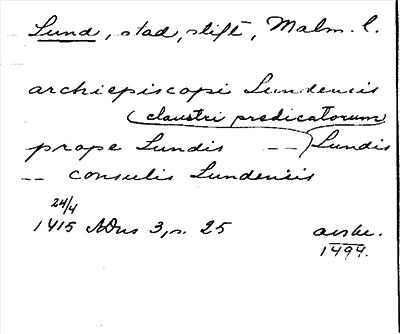 Lund, stad, stift, Malm. l.
archiepiscopi Lundensis
(claustri predicatorum
prope Lundis -- Lundis
-- consulis Lundensis
24/4
1415 NDns 3, s. 25 avskr.
1494.